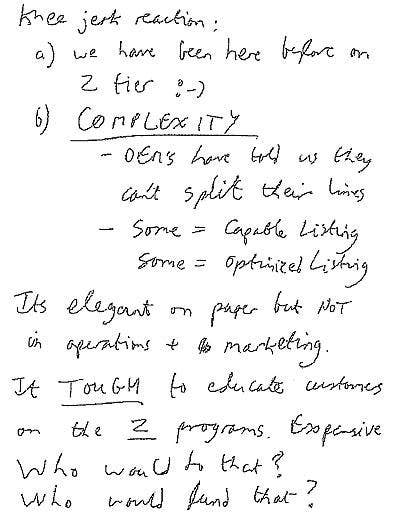 Knee jerk reaction:
a) we have been here before on
2 tier :-)
b) COMPLEXITY
- OEM's have told us they
can't split their lines
- Some = Capable Listing
Some = Optimized Listing
Its elegant on paper but NOT
in operations + marketing.
It TOUGH to educate customers
on the 2 programs. Expensive
Who would do that?
Who would fund that?